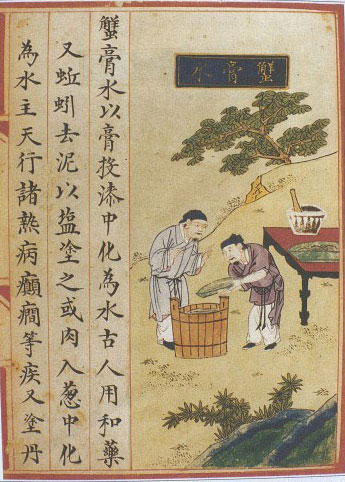 蟹膏水
蟹膏水以膏投漆中化為水古人用和藥
又蚯蚓去泥以塩塗之或肉入葱中化
為水主天行諸熱病癲癎等疾又塗丹